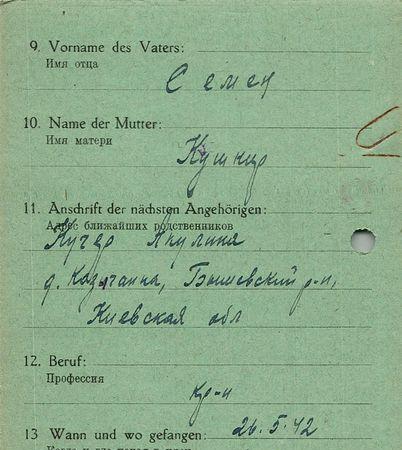 9. Vorname des Vaters:
Имя отца
Семен
10. Name der Mutter:
Имя матери
Кушнир
11. Anschrift der nächsten Angehörigen:
Адрес ближайших родственников
Кучер Акулина
д. Казичанка, Бышевский р-н,
Киевская обл
12. Beruf:
Профессия
кр-н
13 Wann und wo gefangen: 26.5.42